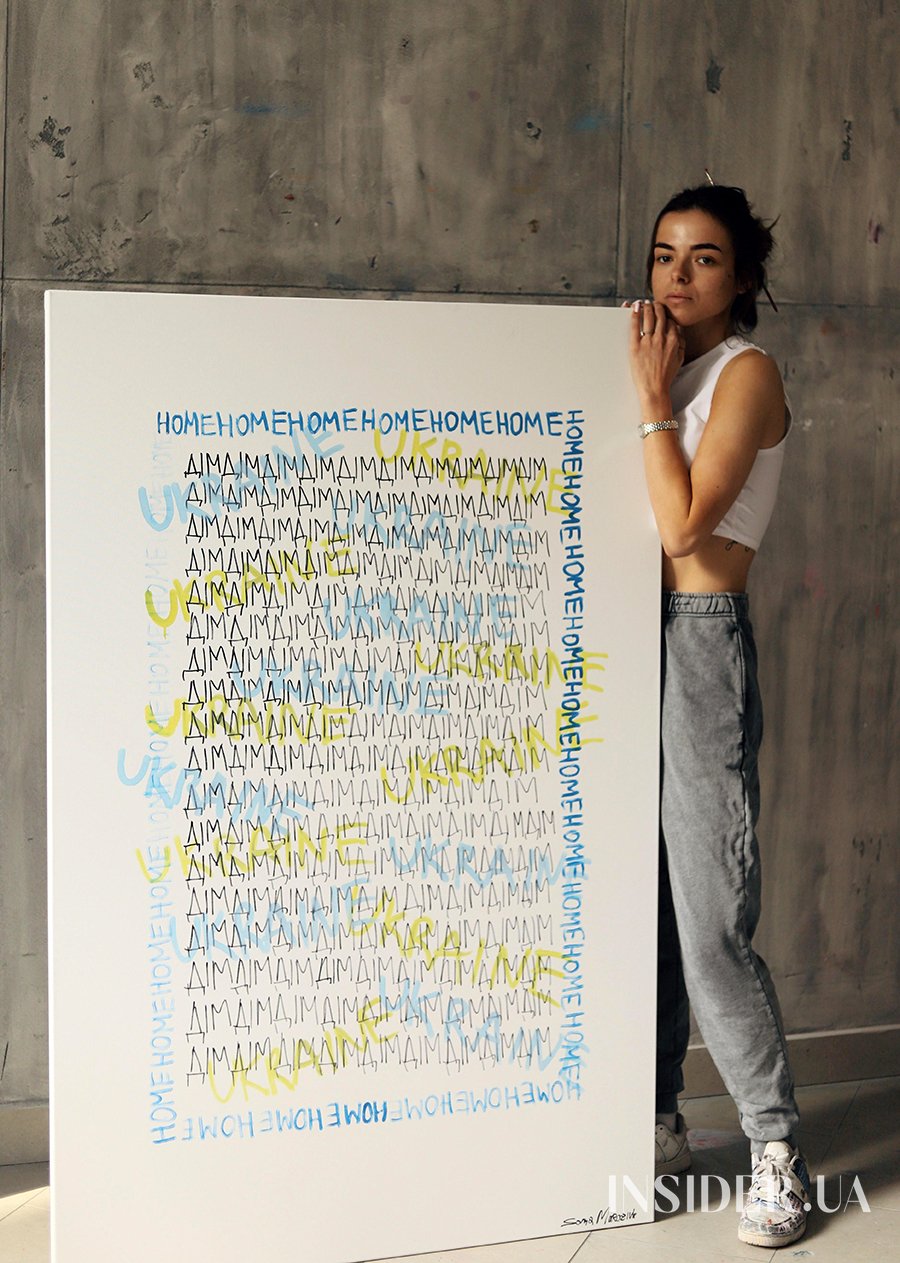 HOMEHOMEHOMEHOMEHOMEHOME
HOMEHOMEHOMEHOMEHOMEHOMEHOMEHOMEHOMEHOME
ДІМДІМДІМДІМДІМДІМДІМДІМДІМ
ДІМДІМДІМДІМДІМДІМДІМДІМДІМ
ДІМДІМДІМДІМДІМДІМДІМДІМДІМ
ДІМДІМДІМДІМДІМДІМДІМДІМДІМ
ДІМДІМДІМДІМДІМДІМДІМДІМДІМ
ДІМДІМДІМДІМДІМДІМДІМДІМДІМ
ДІМДІМДІМДІМДІМДІМДІМДІМДІМ
ДІМДІМДІМДІМДІМДІМДІМДІМДІМ
ДІМДІМДІМДІМДІМДІМДІМДІМДІМ
ДІМДІМДІМДІМДІМДІМДІМДІМДІМ
ДІМДІМДІМДІМДІМДІМДІМДІМ
ДІМДІМДІМДІМДІМДІМДІМДІМДІМ
ДІМДІМДІМДІМДІМДІМДІМДІМДІМ
ДІМДІМДІМДІМДІМДІМДІМДІМДІМ
ДІМДІМДІМДІМДІМДІМДІМДІМДІМ
ДІМДІМДІМДІМДІМДІМДІМДІМ
ДІМДІМДІМДІМДІМДІМДІМДІМ
ДІМДІМДІМДІМДІМДІМДІМДІМ
UKRAINE
UKRAINE
UKRAINE
UKRAINE
UKRAINE
UKRAINE
UKRAINE
UKRAINE
UKRAINE
UKRAINE
UKRAINE
UKRAINE
UKRAINE
UKRAINE
UKRAINE
UKRAINE
HOMEHOMEHOMEHOMEHOMEHOME
INSIDER.UA